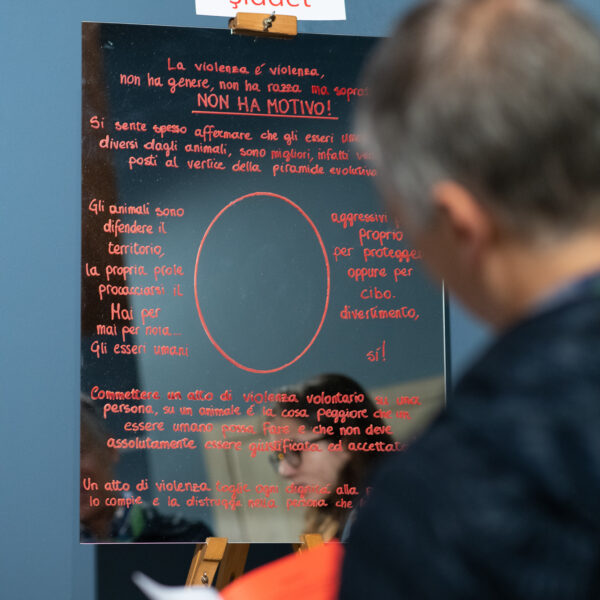 şiddet
La violenza é violenza,
non ha genere, non ha razza ma
NON HA MOTIVO!
Si sente spesso affermare che gli esseri
diversi dagli animali, sono migliori, infatti
posti al vertice della piramide evolutiva
Gli animali sono aggressivi
difendere il proprio
territorio, per
la propria prole oppure per
procacciarsi il cibo.
Mai per divertimento,
mai per noia...
Gli esseri umani sí!
Commettere un atto di violenza volontario su una
persona, su un animale é la cosa peggiore che un
essere umano possa fare e che non deve
assolutamente essere giustificata ed
Un atto di violenza toglie ogni dignità alla
lo compie e la distrugge nella persona che